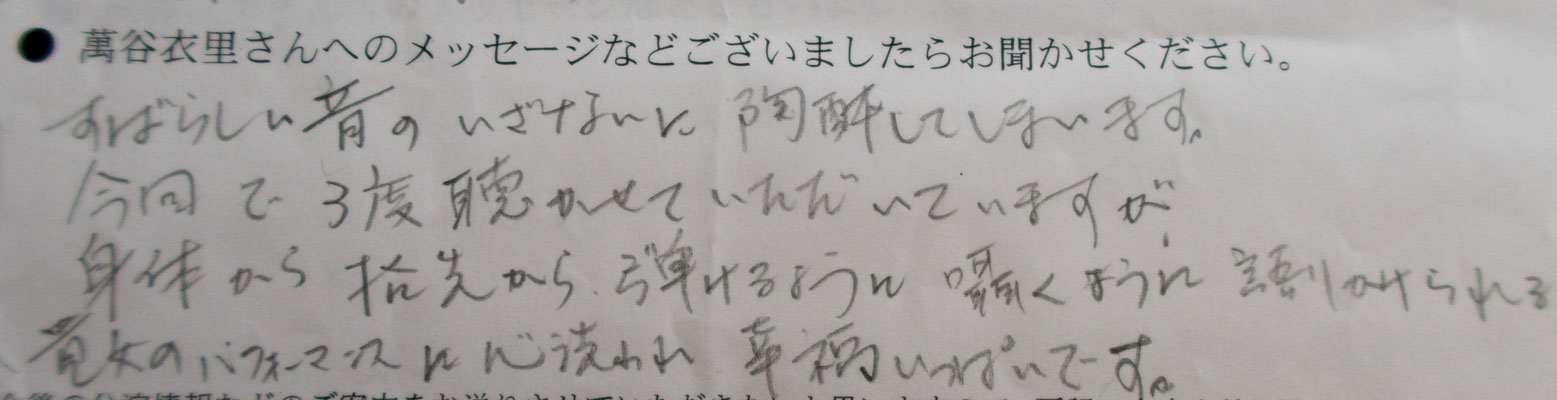 ● 萬谷衣里さんへのメッセージなどございましたらお聞かせください。
すばらしい音の いざないに 陶酔してしまいます。
今回で 3度 聴かせていただいていますが、
身体から 指先から 弾けるように 囁くように 語りかけられる
貴女のパフォーマンスに心洗われ 幸福いっぱいです。